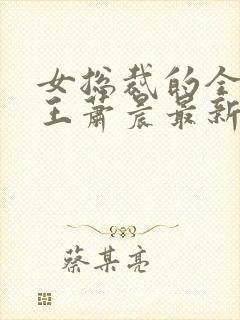 女总裁的全
王萧晨最新
蔡某亮